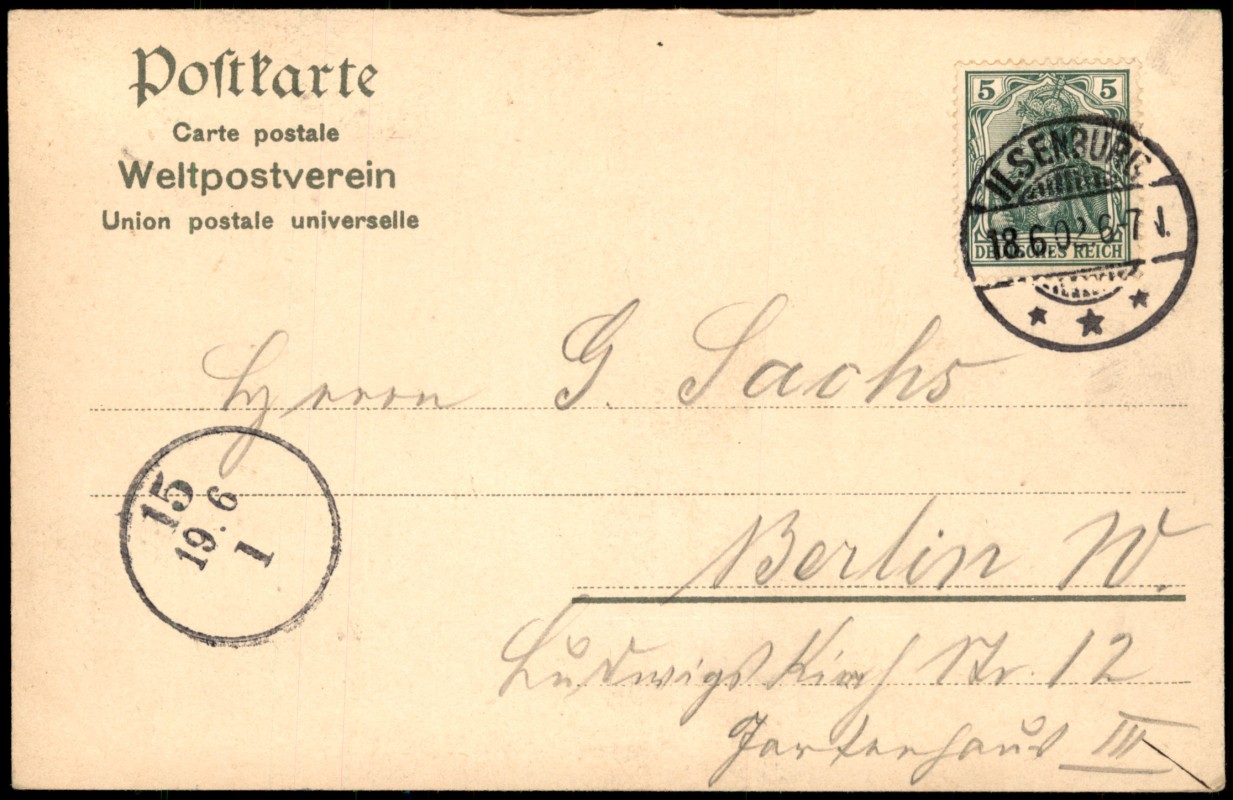 Poſtkarte
Carte postale
Weltpostverein
Union postale universelle
5 5
DEUTSCHES REICH
ILSENBURG
18.6.02 6-7
Herrn G Sachs
15
19.6
1
Berlin W.
Ludwigs Kirch Str. 12
Gartenhaus III